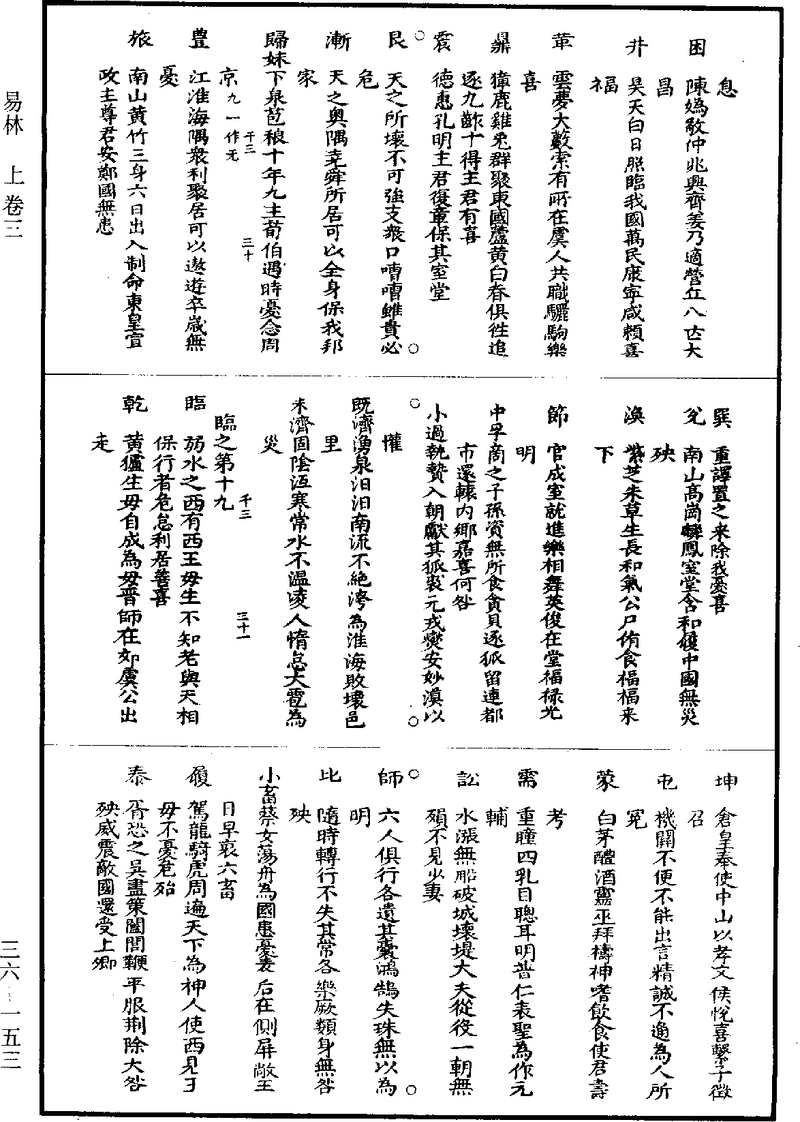 息
困 陳媯敬仲兆興齊姜乃適營丘八世大
昌
井 昊天白日照臨我國萬民康寧咸賴喜
福
革 雲夢大藪索有所在虞人共職驪駒樂
喜
鼎 獐鹿雞兎群聚東國蘆黄白脊俱往追
逐九齡十得主君有喜
震 德惠孔明主君復章保其室堂
艮 天之所壞不可強支衆口嘈嘈雖貴必
危
漸 天之奥隅堯舜所居可以全身保我邦
家
歸妹下泉苞稂十年九主荀伯遇時憂念周
京九一作无
豊 江淮海隅衆利聚居可以遨遊卒歲無
憂
旅 南山黄竹三身六目出入制命東皇宣
政主尊君安鄭國無患
巽 重譯置之来除我憂喜
兊 南山高崗麟鳳室堂含和履中國無災
殃
渙 紫芝朱草生長和氣公尸侑食福福来
下
節 官成室就進樂相舞英俊在堂福禄光
明
中孚商之子孫資無所食貪貝逐狐留連都
市還轅内鄉嘉喜何咎
小過執贄入朝獻其狐裘元戎燮安妙漠以
懽
既濟湧泉汩汩南流不絶洿為淮海敗壞邑
里
未濟固陰沍寒常水不温凌人惰怠大雹為
災
臨之第十九
臨 弱水之西有西王毋生不知老與天相
保行者危怠利居善喜
乾 黄獹生毋自成為毋晋師在郊虞公出
走
坤 倉皇奉使中山以孝文侯悅喜擊子徵
召
屯 機關不便不能出言精誠不通為人所
冤
蒙 白茅醴酒靈巫拜禱神嗜飲食使君壽
考
需 重瞳四乳目聰耳明普仁表聖為作元
輔
訟 水漲無船破城壞堤大夫從役一朝無
殞不見少妻
師 六人俱行各遺其囊鴻鵠失珠無以為
明
比 隨時轉行不失其常各樂厥類身無咎
殃
小畜蔡女蕩舟為國患憂褰后在側屏敞王
日旱哀六畜
履 駕龍騎虎周遍天下為神人使西見王
毋不憂危殆
泰 胥恐之吳畫策闔閭鞭平服荆除大咎
殃威震敵國還受上卿
千三
三十
千三
三十一
易林 上卷三
三六-一五三